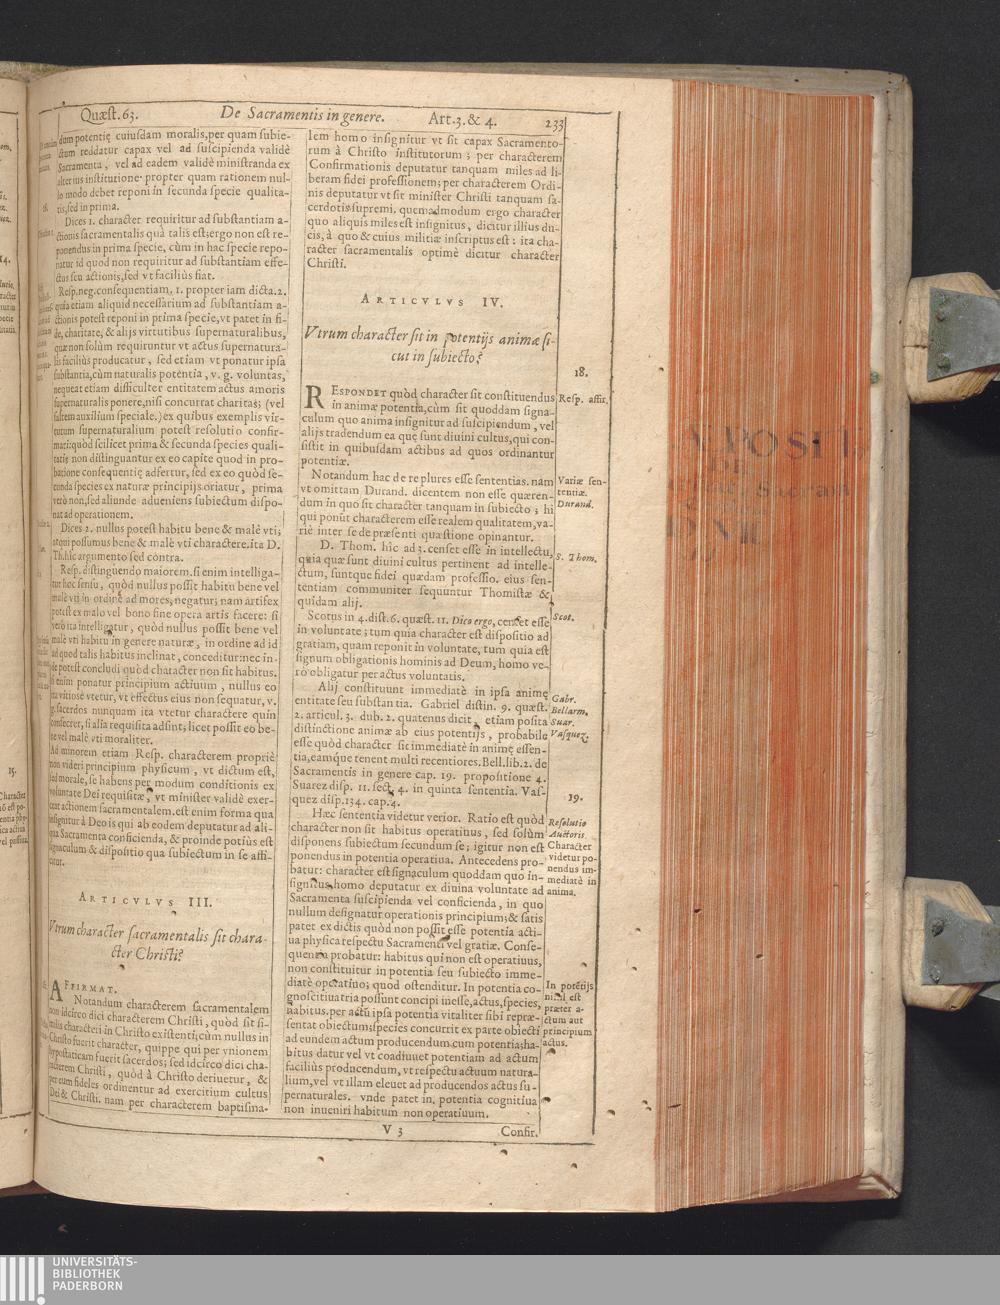 Quæst. 63. De Sacramentis in genere. Art. 3. & 4. 233
dum potentię cuiusdam moralis, per quam subie-
ctum reddatur capax vel ad suscipienda validè
Sacramenta, vel ad eadem validè ministranda ex
alterius institutione. propter quam rationem nul-
lo modo debet reponi in secunda specie qualita-
tis, sed in prima.
Dices 1. character requiritur ad substantiam a-
ctionis sacramentalis quà talis est; ergo non est re-
ponendus in prima specie, cùm in hac specie repo-
natur id quod non requiritur ad substantiam effe-
ctus seu actionis, sed vt faciliùs fiat.
Resp. neg. consequentiam, 1. propter iam dicta. 2.
quia etiam aliquid necessarium ad substantiam a-
ctionis potest reponi in prima specie, vt patet in fi-
de, charitate, & alijs virtutibus supernaturalibus,
quæ non solùm requiruntur vt actus supernatura-
lis faciliùs producatur, sed etiam vt ponatur ipsa
substantia, cùm naturalis potentia, v. g. voluntas,
nequeat etiam difficulter entitatem actus amoris
supernaturalis ponere, nisi concurrat charitas; (vel
saltem auxilium speciale.) ex quibus exemplis vir-
tutum supernaturalium potest resolutio confir-
mari: quòd scilicet prima & secunda species quali-
tatis non distinguantur ex eo capite quod in pro-
batione consequentię adfertur, sed ex eo quòd se-
cunda species ex naturæ principijs oriatur, prima
verò non, sed aliunde adueniens subiectum dispo-
nat ad operationem.
Dices 2. nullus potest habitu bene & malè vti;
atqui possumus bene & malè vti charactere. ita D.
Th. hîc argumento sed contra.
Resp. distinguendo maiorem. si enim intelliga-
tur hoc sensu, quòd nullus possit habitu bene vel
malè vti in ordine ad mores, negatur; nam artifex
potest ex malo vel bono fine opera artis facere: si
verò ita intelligatur, quòd nullus possit bene vel
malè vti habitu in genere naturæ, in ordine ad id
ad quod talis habitus inclinat, conceditur: nec in-
de potest concludi quòd character non sit habitus.
si enim ponatur principium actiuum, nullus eo
ita vitiosè vtetur, vt effectus eius non sequatur, v.
g. sacerdos nunquam ita vtetur charactere quin
consecret, si alia requisita adsint; licet possit eo be-
ne vel malè vti moraliter.
Ad minorem etiam Resp. characterem propriè
non videri principium physicum, vt dictum est,
sed morale, se habens per modum conditionis ex
voluntate Dei requisitæ, vt minister validè exer-
ceat actionem sacramentalem. est enim forma qua
insignitur à Deo is qui ab eodem deputatur ad ali-
qua Sacramenta conficienda, & proinde potiùs est
signaculum & dispositio qua subiectum in se affi-
citur.
ARTICVLVS III.
Vtrum character sacramentalis sit chara-
cter Christi?
AFFIRMAT.
Notandum characterem sacramentalem
non idcirco dici characterem Christi, quòd sit si-
milis characteri in Christo existenti; cùm nullus in
Christo fuerit character, quippe qui per vnionem
hypostaticam fuerit sacerdos; sed idcirco dici cha-
racterem Christi, quòd à Christo deriuetur, &
per eum fideles ordinentur ad exercitium cultus
Dei & Christi. nam per characterem baptisma-
lem homo insignitur vt sit capax Sacramento-
rum à Christo institutorum; per characterem
Confirmationis deputatur tanquam miles ad li-
beram fidei professionem; per characterem Ordi-
nis deputatur vt sit minister Christi tanquam sa-
cerdotis supremi. quemadmodum ergo character
quo aliquis miles est insignitus, dicitur illius du-
cis, à quo & cuius militiæ inscriptus est: ita cha-
racter sacramentalis optimè dicitur character
Christi.
ARTICVLVS IV.
Vtrum character sit in potentijs animæ si-
cut in subiecto?
18.
RESPONDET quòd character sit constituendus
in animæ potentia, cùm sit quoddam signa-
culum quo anima insignitur ad suscipiendum, vel
alijs tradendum ea quę sunt diuini cultus, qui con-
sistit in quibusdam actibus ad quos ordinantur
potentiæ.
Resp. affir.
Notandum hac de re plures esse sententias. nam
vt omittam Durand. dicentem non esse quæren-
dum in quo sit character tanquam in subiecto; hi
qui ponūt characterem esse realem qualitatem, va-
riè inter se de præsenti quæstione opinantur.
Variæ sen-
tentiæ.
Durand.
D. Thom. hîc ad 3. censet esse in intellectu,
quia quæ sunt diuini cultus pertinent ad intelle-
ctum, suntque fidei quædam professio. eius sen-
tentiam communiter sequuntur Thomistæ &
quidam alij.
S. Thom.
Scotus in 4. dist. 6. quæst. 11. Dico ergo, censet esse
in voluntate; tum quia character est dispositio ad
gratiam, quam reponit in voluntate, tum quia est
signum obligationis hominis ad Deum, homo ve-
rò obligatur per actus voluntatis.
Scot.
Alij constituunt immediatè in ipsa animę
entitate seu substantia. Gabriel distin. 9. quæst.
2. articul. 3. dub. 2. quatenus dicit, etiam posita
distinctione animæ ab eius potentijs, probabile
esse quòd character sit immediatè in animę essen-
tia, eamque tenent multi recentiores. Bell. lib. 2. de
Sacramentis in genere cap. 19. propositione 4.
Suarez disp. 11. sect. 4. in quinta sententia. Vas-
quez disp. 134. cap. 4.
Gabr.
Bellarm.
Suar.
Vasquez.
19.
Hæc sententia videtur verior. Ratio est quòd
character non sit habitus operatiuus, sed solùm
disponens subiectum secundum se; igitur non est
ponendus in potentia operatiua. Antecedens pro-
batur: character est signaculum quoddam quo in-
signitus homo deputatur ex diuina voluntate ad
Sacramenta suscipienda vel conficienda, in quo
nullum designatur operationis principium; & satis
patet ex dictis quòd non possit esse potentia acti-
ua physica respectu Sacramenti vel gratiæ. Conse-
quentia probatur: habitus qui non est operatiuus,
non constituitur in potentia seu subiecto imme-
diatè operatiuo; quod ostenditur. In potentia co-
gnoscitiua tria possunt concipi inesse, actus, species,
habitus. per actū ipsa potentia vitaliter sibi repræ-
sentat obiectum; species concurrit ex parte obiecti
ad eundem actum producendum cum potentia; ha-
bitus datur vel vt coadiuuet potentiam ad actum
faciliùs producendum, vt respectu actuum natura-
lium, vel vt illam eleuet ad producendos actus su-
pernaturales. vnde patet in potentia cognitiua
non inueniri habitum non operatiuum.
Resolutio
Auctoris.
Character
videtur po-
nendus im-
mediatè in
anima.
In potētijs
nihil est
præter a-
ctum aut
principium
actus.
V 3 Confir.
UNIVERSITÄTS-
BIBLIOTHEK
PADERBORN